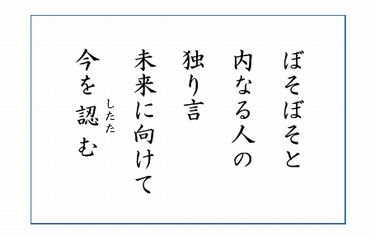 ぼそぼそと
内なる人の
独り言
未来に向けて
今を認む
したた